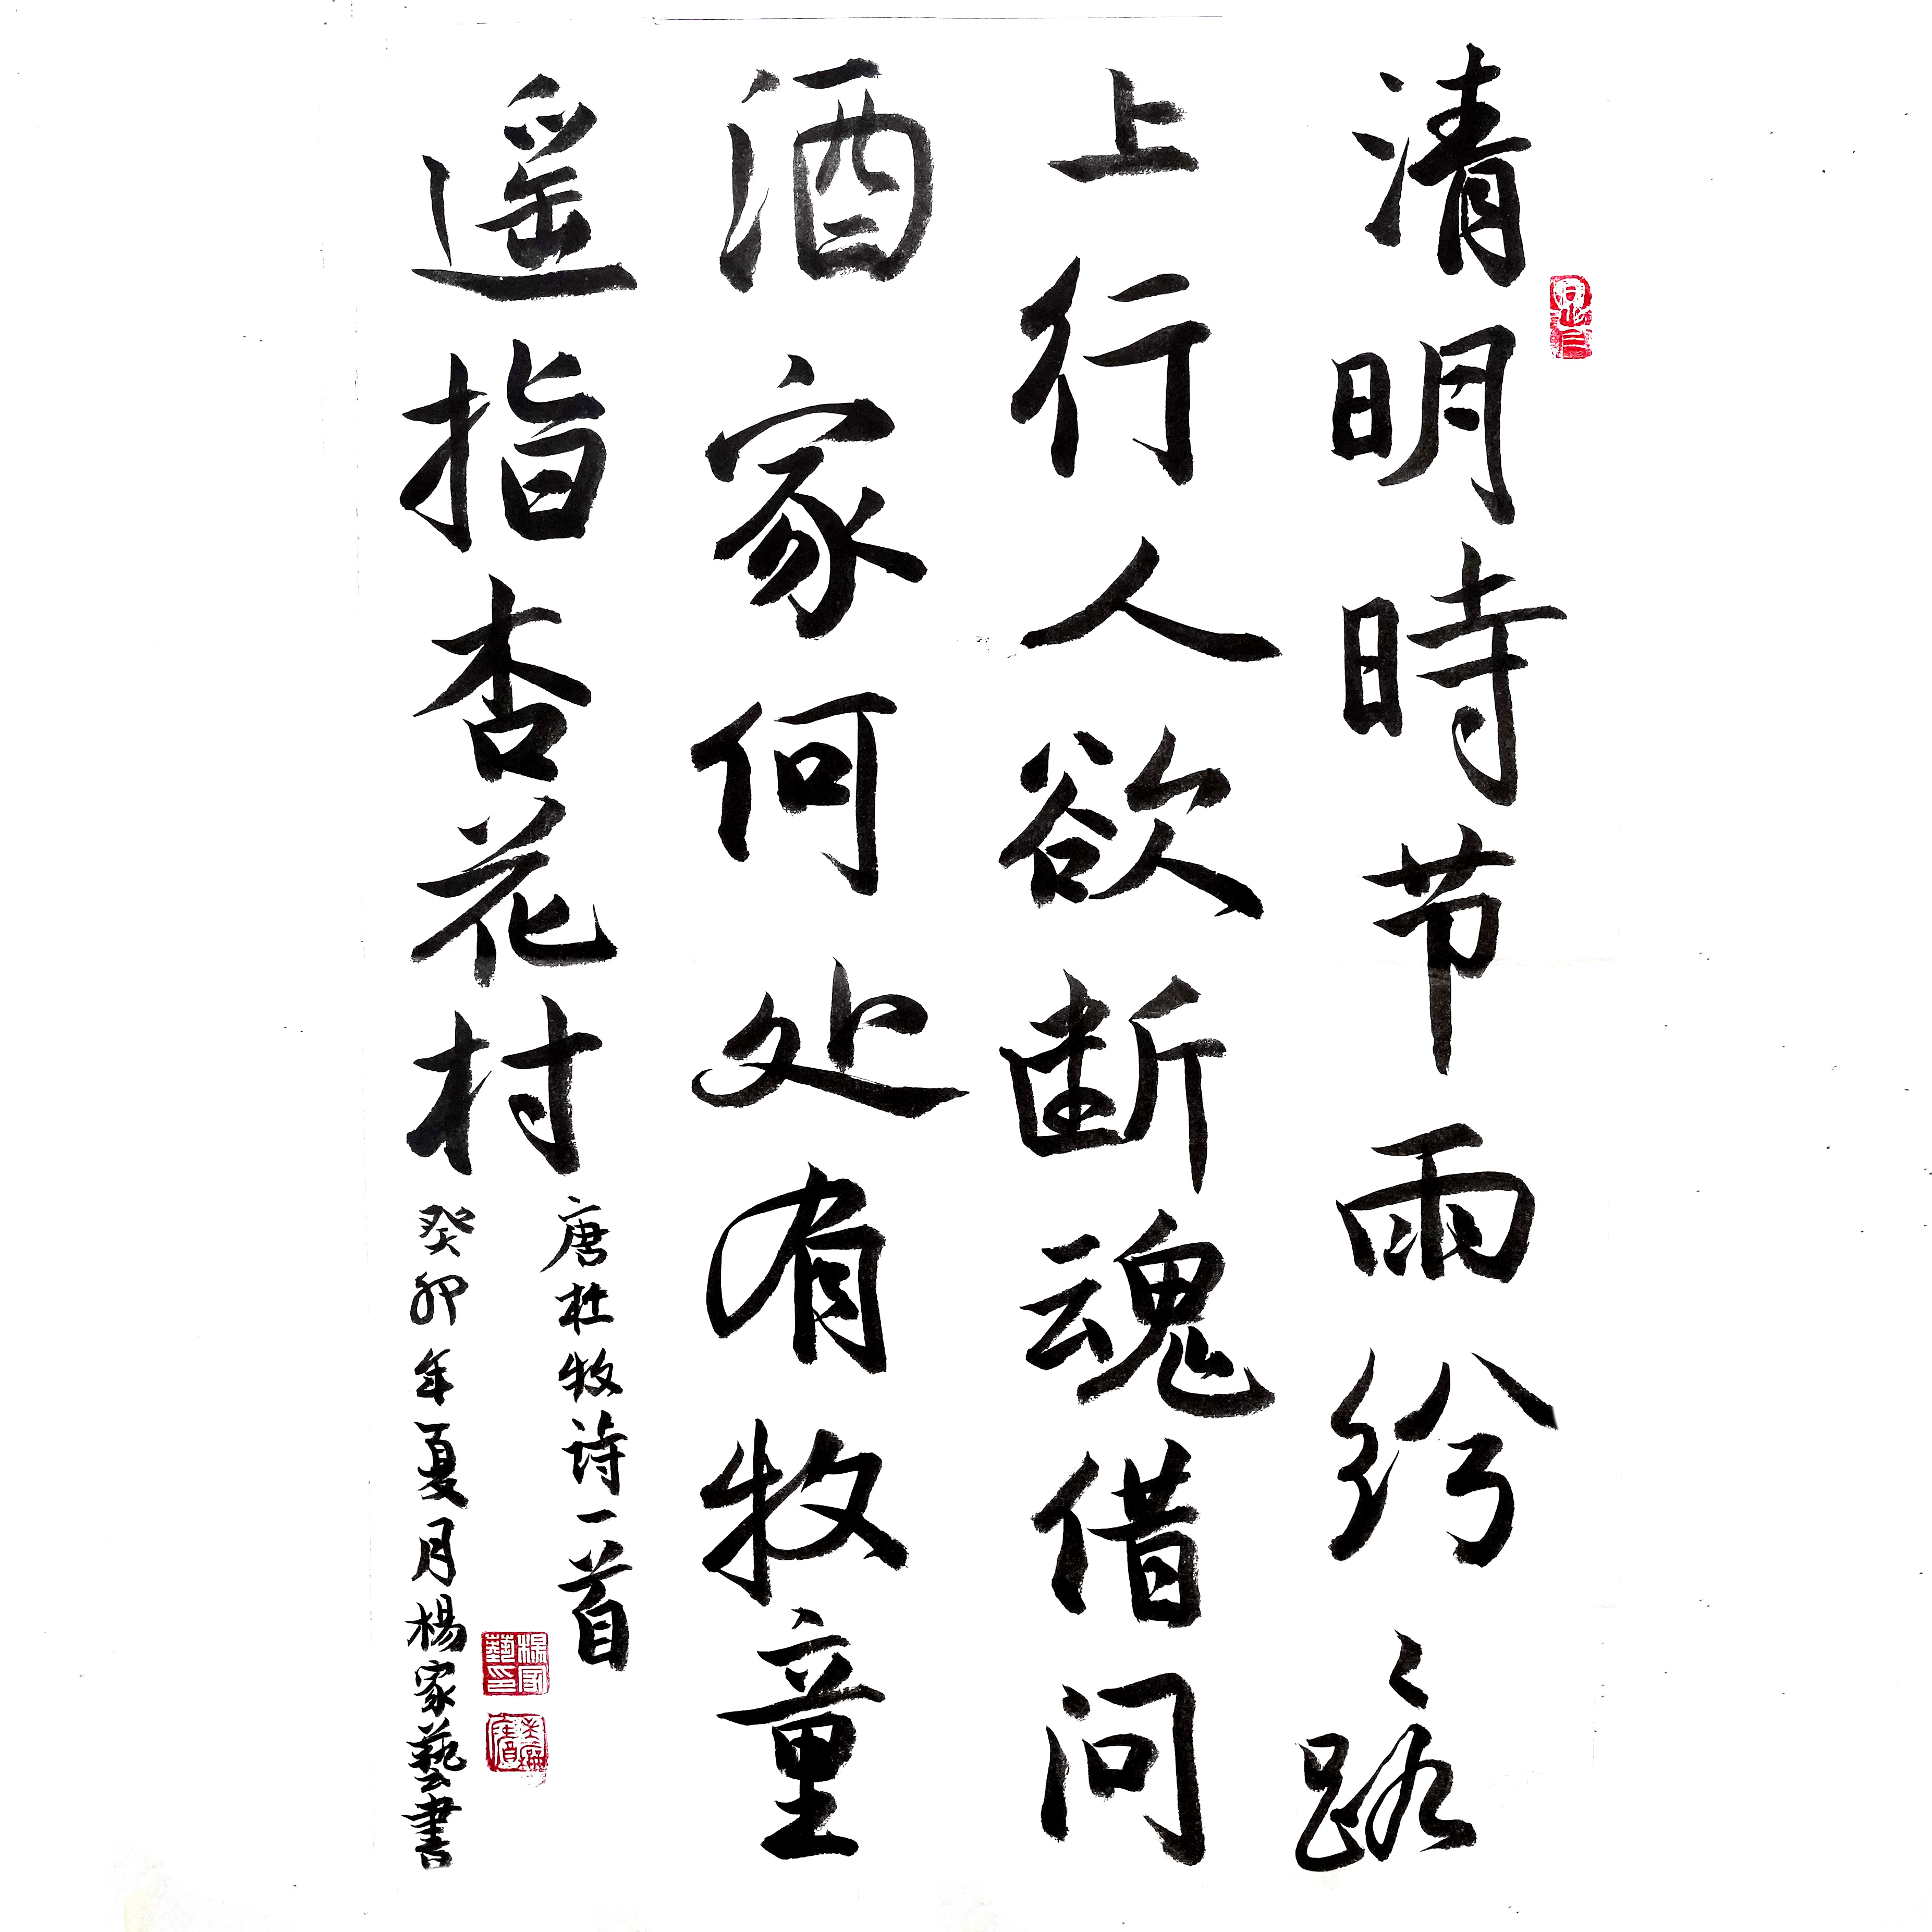 清明時节雨紛〻路
上行人欲断魂借问
酒家何处有牧童
遥指杏花村
唐杜牧诗一首
癸卯年夏月楊家藝書
楊家藝印